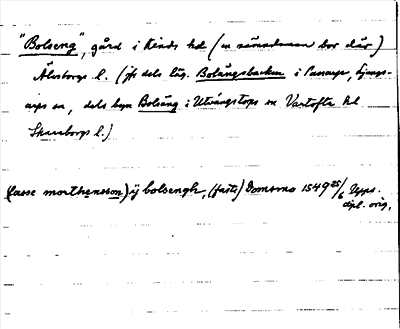 "Bolseng", gård i Kinds hd (en nämndeman bor där)
Älvsborgs l. (jfr dels låg. Bolängsbacken i
dels byn Bolsäng i Utvängstorps sn Vartofta hd
Skaraborgs l.)
(lasse morthensson) ij bolsengh, (faste) Domsmo 1549 25/6 Upps.
dipl. orig.